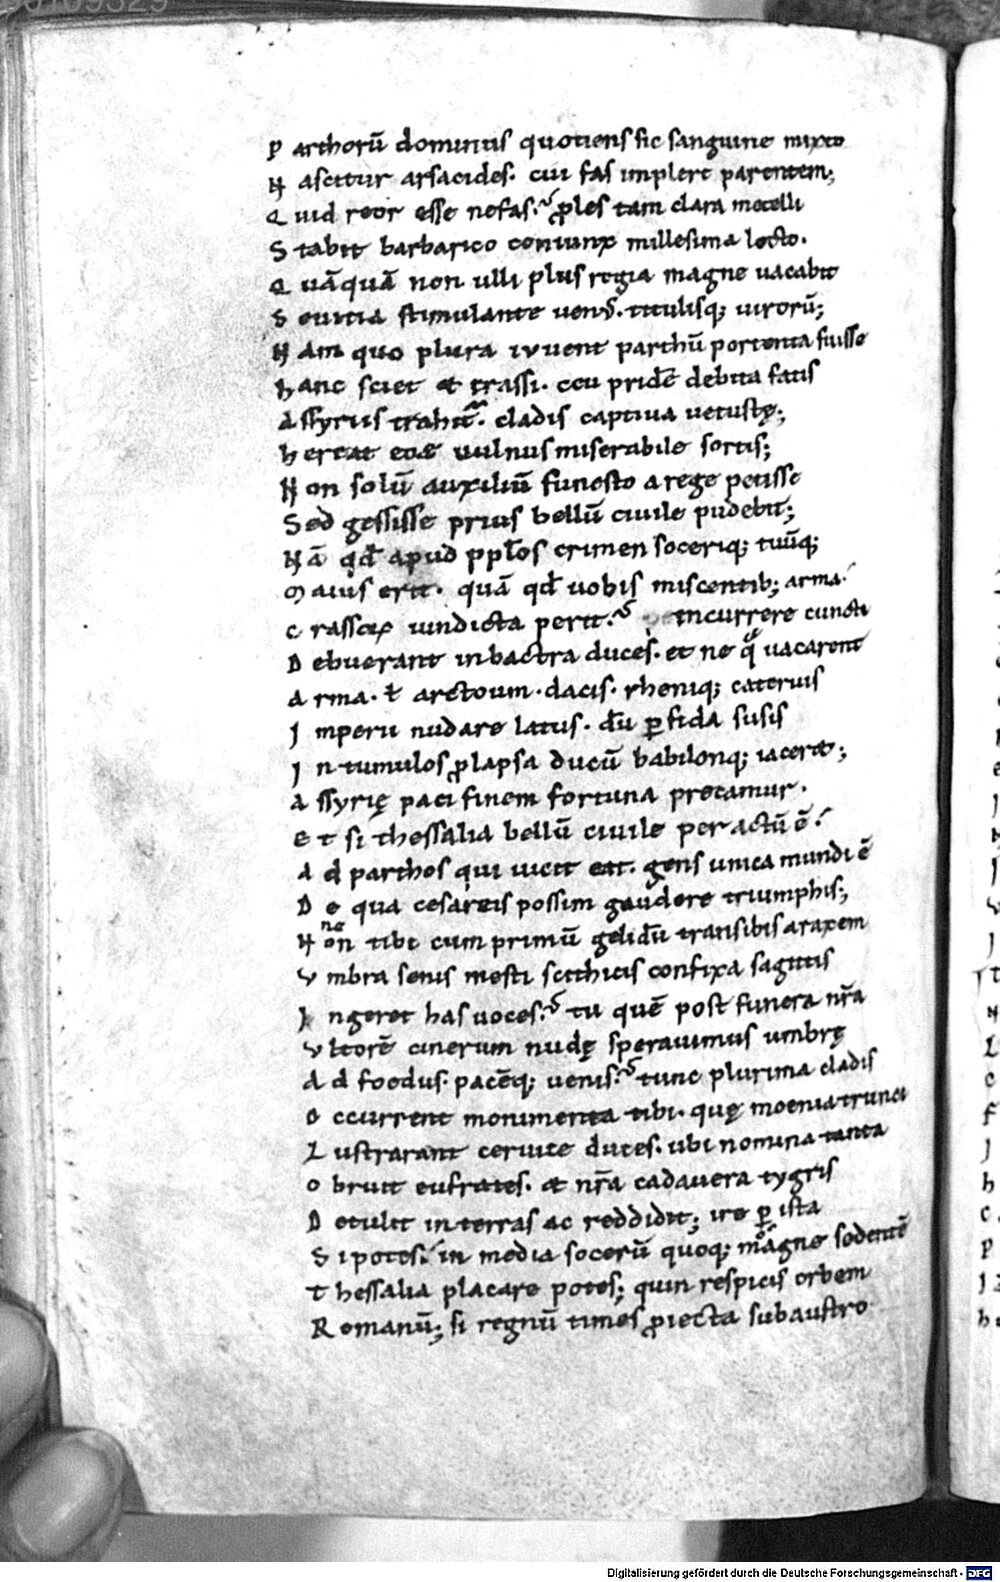 90109329
P arthorū dominus quotiens sic sanguine mixto
N ascitur arsacides. cui fas implere parentem;
Q uid reor esse nefas? ꝓles tam clara metelli
S tabit barbarico coniunx millesima lecto.
Q uāquā non ulli plus regia magne uacabit
S euitia stimulante uenꝰ. titulisq; uirorū;
N am quo plura iuuent parthū portenta fuisse
h anc sciet et crassi. ceu pridē debita fatis
A ssyriis trahit᷑. cladis captiua uetustę;
h ereat eoę uulnus miserabile sortis;
N on solū auxiliū funesto a rege petisse
S ed gessisse prius bellū ciuile pudebit;
N ā qđ apud pplos crimen soceriq; tuūq;
M aius erit. quā qđ uobis miscentib; arma.
C rassoꝝ uindicta perit? incurrere cuncti
D ebuerant in bactra duces. et ne q̄ uacarent
A rma. ł arctoum. dacis. rheniq; cateruis
I mperii nudare latus. dū ꝑfida susis
I n tumulos ꝓlapsa ducū babilonq; iaceret;
A ssyrię paci finem fortuna precamur.
E t si thessalia bellū ciuile peractū ē.
A d parthos qui uicit eat. gens unica mundi ē
D e qua cesareis possim gaudere triumphis;
N onne tibi cum primū gelidū transibis araxem
V mbra senis mesti scithicis confixa sagittis
I ngeret has uoces? tu quē post funera nr̄a
V ltorē cinerum nudę sperauimus umbrę
A d foedus. pacēq; uenis? tunc plurima cladis
O ccurrent monumenta tibi. quę moenia trunci
L ustrarunt ceruice duces. ubi nomina tanta
O bruit eufrates. et nr̄a cadauera tygris
D etulit in terras ac reddidit; ire ꝑ ista
S i potes. in media socerū quoq; magne sedentē
T hessalia placare potes; quin respicis orbem
R omanū; si regnū times ꝓiecta sub austro
Digitalisierung gefördert durch die Deutsche Forschungsgemeinschaft - DFG